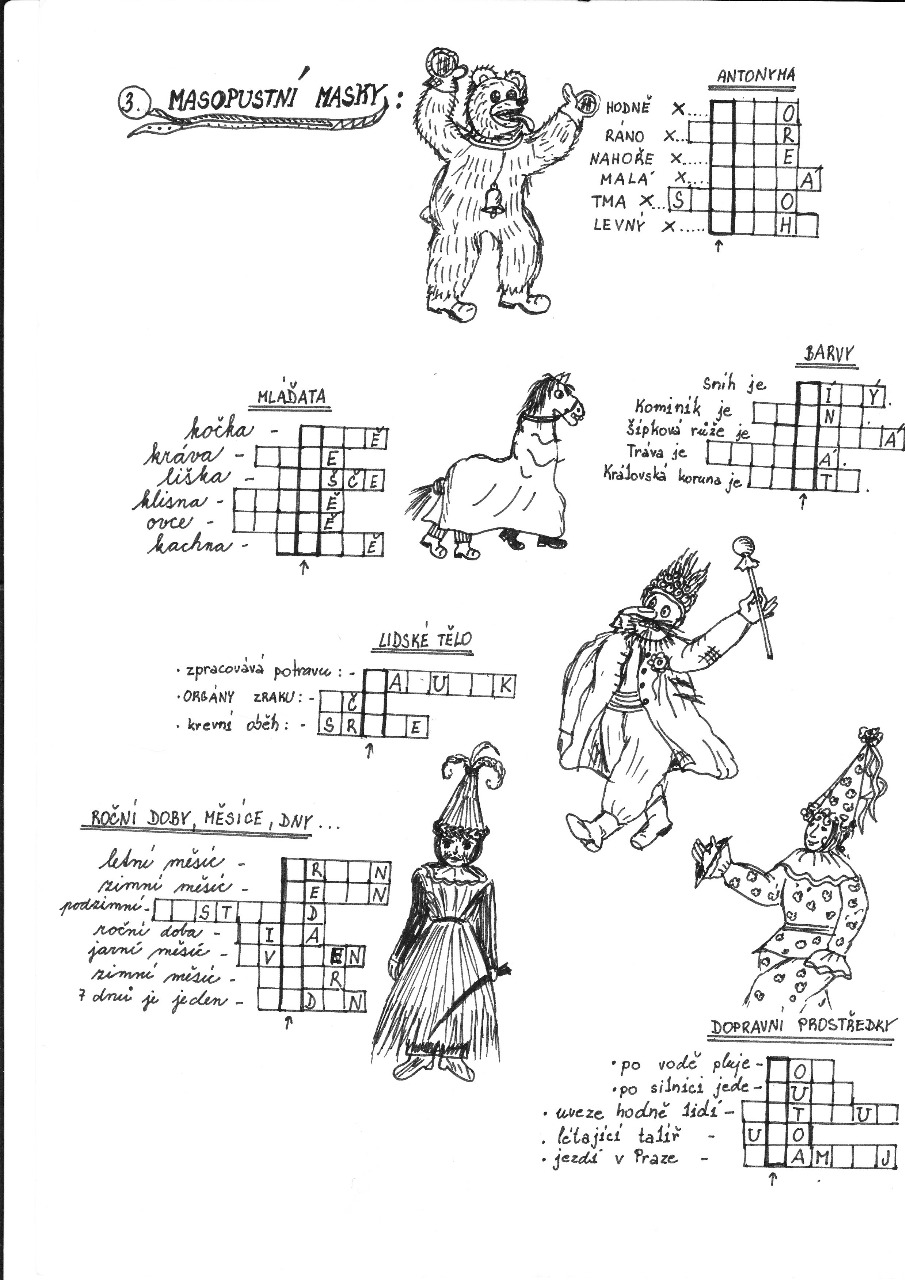 3. MASOPUSTNÍ MASKY:
ANTONYMA
HODNĚ X..... O
RÁNO X... R
NAHOŘE X..... E
MALÁ X.... Á
TMA X... S O
LEVNÝ X..... H
↑
BARVY
Sníh je Í Ý.
Kominík je N
Šípková růže je Á
Tráva je Á.
Královská koruna je T .
↑
MLÁĎATA
kočka - Ě
kráva - E
liška - Š Č E
klisna - Ě
ovce - Ě
kachna - Ě
↑
LIDSKÉ TĚLO
• zpracovává potravu: - A U K
• ORGÁNY ZRAKU: - Č
• krevní oběh: - S R E
↑
ROČNÍ DOBY, MĚSÍCE, DNY...
letní měsíc - R N
zimní měsíc - E N
podzimní - S T D
roční doba - I A
jarní měsíc - V E N
zimní měsíc - R
7 dnů je jeden - D N
↑
DOPRAVNÍ PROSTŘEDKY
• po vodě pluje - O
• po silnici jede - U
• uveze hodně lidí - T U
• létající talíř - U O
• jezdí v Praze - A M J
↑